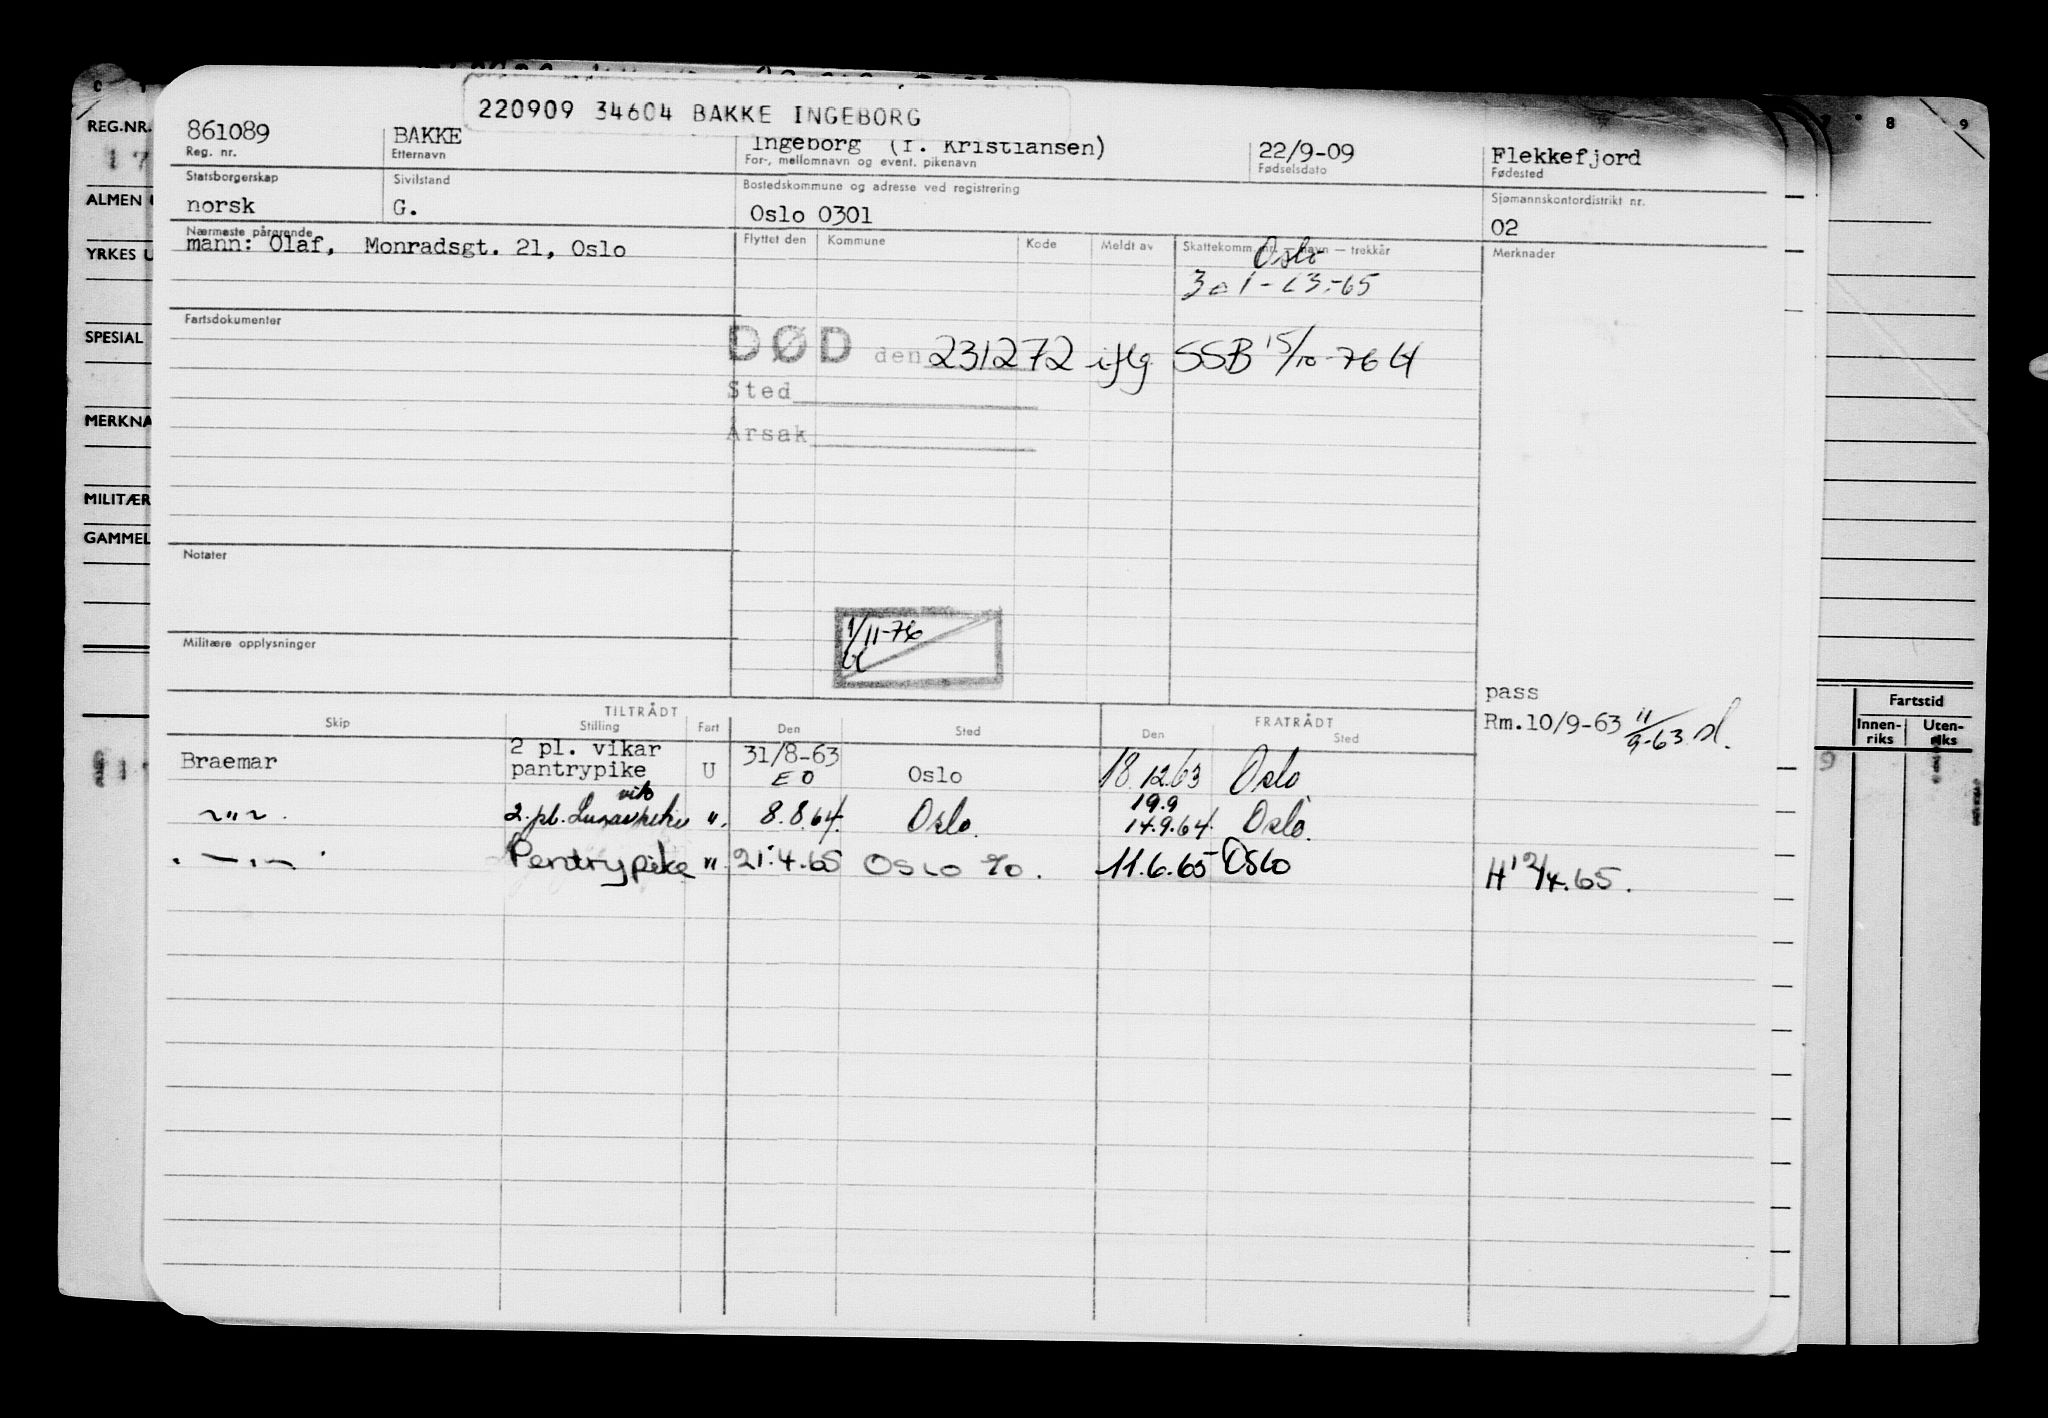 220909 34604 BAKKE INGEBORG
REG.NR.
861089
Reg. nr.
BAKKE
Etternavn
Ingeborg (f. Kristiansen)
For-, mellomnavn og event. pikenavn
22/9-09
Fødselsdato
Flekkefjord
Fødested
8
9
17
ALMEN
YRKES U
SPESIAL
MERKNA
MILITÆR
GAMMEL
Statsborgerskap
norsk
Sivilstand
G.
Bostedskommune og adresse ved registrering
Oslo 0301
Sjømannskontordistrikt nr.
02
Nærmeste pårørende
mann: Olaf, Monradsgt. 21, Oslo
Flyttet den
Kommune
Kode
Meldt av
Skattekomm. nr. — navn — trekkår
Oslo
301-63-65
Merknader
Fartsdokumenter
DØD den 231272 iflg. SSB 15/10-76
Sted
Årsak
Notater
1/11-76
Militære opplysninger
pass
Rm.10/9-63 11/9-63
Fartstid
Innen-
riks
Uten-
riks
TILTRÅDT
FRATRÅDT
Skip
Stilling
Fart
Den
Sted
Den
Sted
Braemar
2 pl. vikar
pantrypike
U
31/8-63
EO
Oslo
18.12.63
Oslo
-"-
2.pl. Lugarpike
vik
".
8.8.64.
Oslo.
19.9
14.9.64.
Oslo.
-"-
Pentrypike
"
21.4.65
Oslo %.
11.6.65
Oslo
H 12/4.65.
9